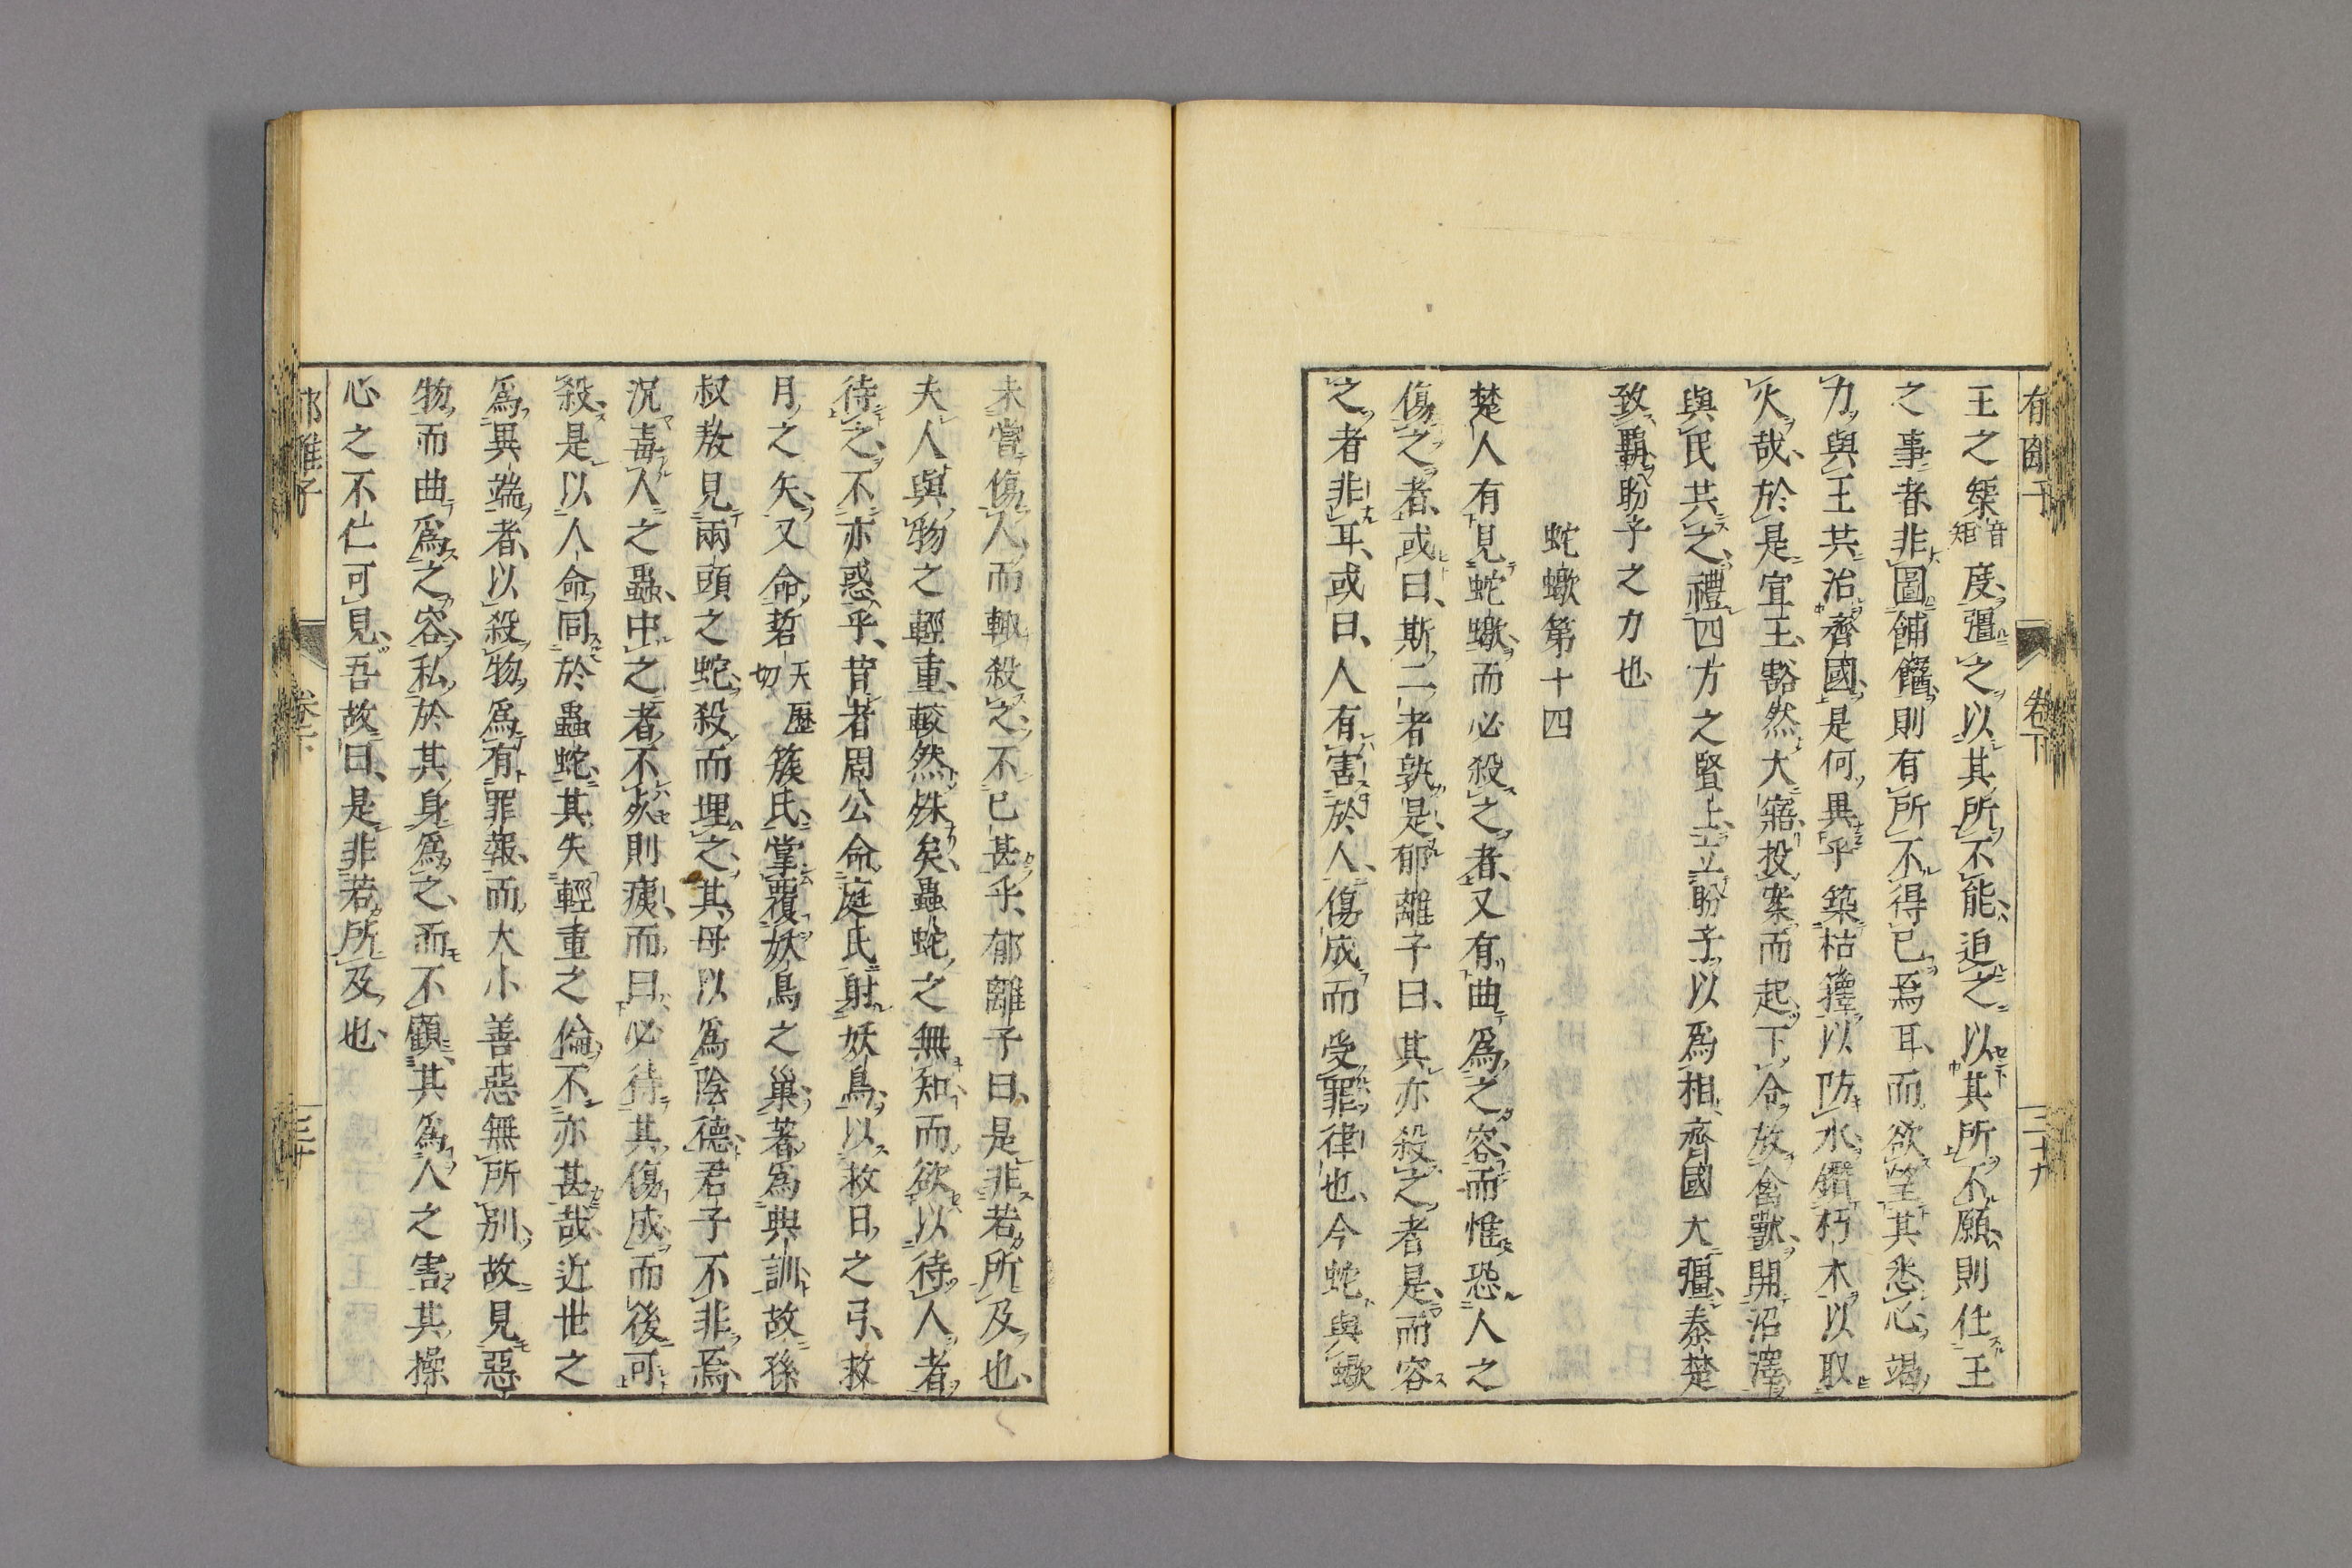 王之榘音矩度彊之以其所不能迫之以其所不願則仕王
之事者非圖餔饟則有所不得已焉耳而欲望其悉心竭
力與王共治齊國是何異乎築枯籜以防水鑽朽木以取
火哉於是宣王豁然大寤投案而起下令放禽獸開沼澤
與民共之禮四方之賢士立盼子以爲相齊國大彊秦楚
致覇盼子之力也
蛇蠍第十四
楚人有見蛇蠍而必殺之者又有曲爲之容而惟恐人之
傷之者或曰斯二者孰是郁離子曰其亦殺之者是而容
之者非耳或曰人有害於人傷成而受罪律也今蛇與蠍
未嘗傷人而輒殺之不已甚乎郁離子曰是非若所及也
夫人與物之輕重較然殊矣蟲蛇之無知而欲以待人者
待之不亦惑乎昔者周公命庭氏射妖鳥以救日之弓救
月之矢又命硩天歷切簇氏掌覆妖鳥之巢著爲典訓故孫
叔敖見兩頭之蛇殺而埋之其母以爲陰德君子不非焉
況毒人之蟲中之者不死則痍而曰必待其傷成而後可
殺是以人命同於蟲蛇其失輕重之倫不亦甚哉近世之
爲異端者以殺物爲有罪報而大小善惡無所別故見惡
物而曲爲之容私於其身爲之而不顧其爲人之害其操
心之不仁可見吾故曰是非若所及也
卷下
三十九
郁離子
卷下
三十